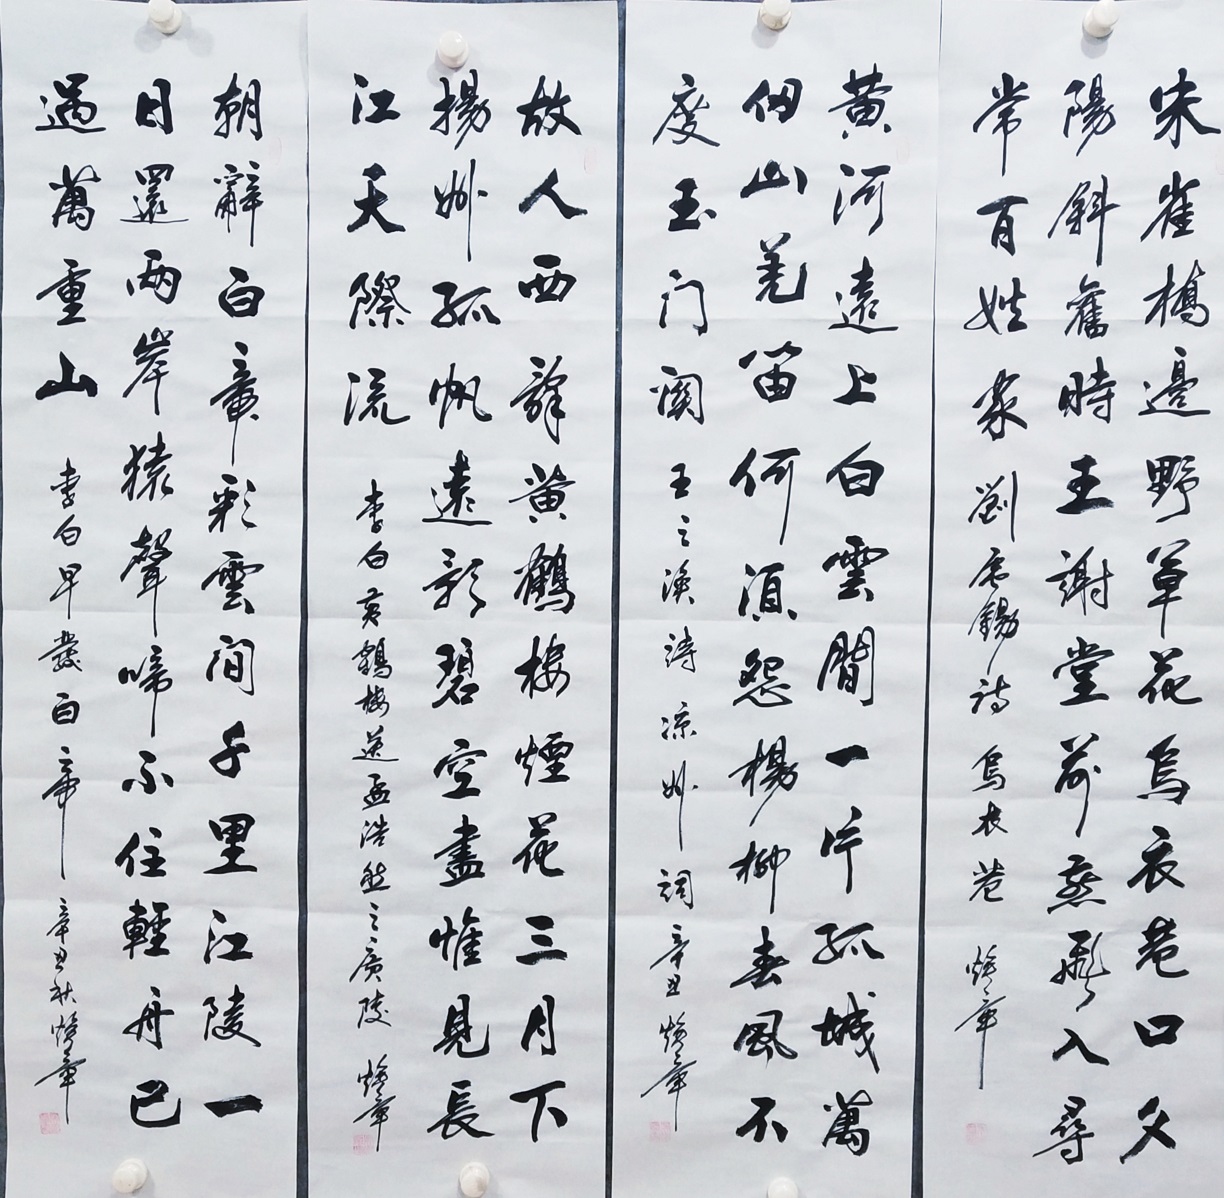 朱雀橋邊野草花烏衣巷口夕
陽斜舊時王謝堂前燕飛入尋
常百姓家 劉禹錫詩 烏衣巷 章
黃河遠上白雲間一片孤城萬
仞山羌笛何須怨楊柳春風不
度玉门関 王之渙詩涼州詞 辛丑 章
故人西辭黃鶴樓煙花三月下
揚州孤帆遠影碧空盡惟見長
江天際流 李白黃鶴樓送孟浩然之廣陵 章
朝辭白帝彩雲间千里江陵一
日還兩岸猿聲啼不住輕舟已
過萬重山 李白早發白帝 辛丑秋 章